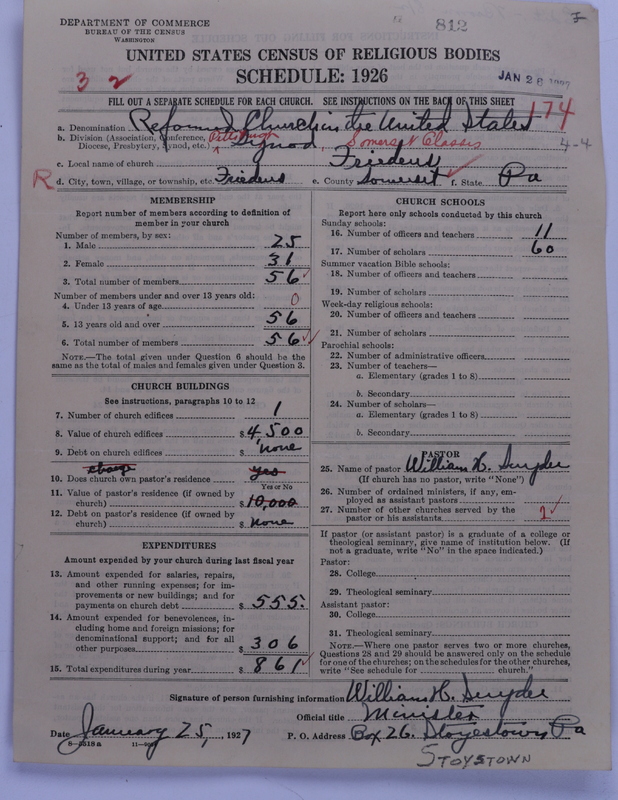 DEPARTMENT OF COMMERCE
BUREAU OF THE CENSUS
WASHINGTON
812
UNITED STATES CENSUS OF RELIGIOUS BODIES
SCHEDULE: 1926
3 2
JAN 28 1927
FILL OUT A SEPARATE SCHEDULE FOR EACH CHURCH. SEE INSTRUCTIONS ON THE BACK OF THIS SHEET
174
4-4
a. Denomination Reformed Church in the United States
b. Division (Association, Conference, Diocese, Presbytery, Synod, etc.) Pittsburgh Synod, Somerset Classis
c. Local name of church Friedens
R d. City, town, village, or township, etc. Friedens e. County Somerset f. State Pa
MEMBERSHIP
Report number of members according to definition of
member in your church
Number of members, by sex:
1. Male 25
2. Female 31
3. Total number of members 56
Number of members under and over 13 years old:
4. Under 13 years of age 0
5. 13 years old and over 56
6. Total number of members 56
NOTE.—The total given under Question 6 should be the
same as the total of males and females given under Question 3.
CHURCH BUILDINGS
See instructions, paragraphs 10 to 12
7. Number of church edifices 1
8. Value of church edifices $ 4,500
9. Debt on church edifices $ none
10. Does church own pastor's residence yes
Yes or No
11. Value of pastor's residence (if owned by
church) $ 10,000
12. Debt on pastor's residence (if owned by
church) $ none
EXPENDITURES
Amount expended by your church during last fiscal year
13. Amount expended for salaries, repairs,
and other running expenses; for im-
provements or new buildings; and for
payments on church debt $ 555.
14. Amount expended for benevolences, in-
cluding home and foreign missions; for
denominational support; and for all
other purposes $ 306
15. Total expenditures during year $ 861
CHURCH SCHOOLS
Report here only schools conducted by this church
Sunday schools:
16. Number of officers and teachers 11
17. Number of scholars 60
Summer vacation Bible schools:
18. Number of officers and teachers
19. Number of scholars
Week-day religious schools:
20. Number of officers and teachers
21. Number of scholars
Parochial schools:
22. Number of administrative officers
23. Number of teachers—
a. Elementary (grades 1 to 8)
b. Secondary
24. Number of scholars—
a. Elementary (grades 1 to 8)
b. Secondary
PASTOR
25. Name of pastor William H. Snyder
(If church has no pastor, write "None")
26. Number of ordained ministers, if any, em-
ployed as assistant pastors
27. Number of other churches served by the
pastor or his assistants
If pastor (or assistant pastor) is a graduate of a college or
theological seminary, give name of institution below. (If
not a graduate, write "No" in the space indicated.)
Pastor:
28. College
29. Theological seminary
Assistant pastor:
30. College
31. Theological seminary
NOTE.—Where one pastor serves two or more churches,
Questions 28 and 29 should be answered only on the schedule
for one of the churches; on the schedules for the other churches,
write "See schedule for church."
Signature of person furnishing information William H. Snyder
Official title Minister
Date January 25, 1927 P. O. Address Box 26. Stoyestown Pa
STOYSTOWN